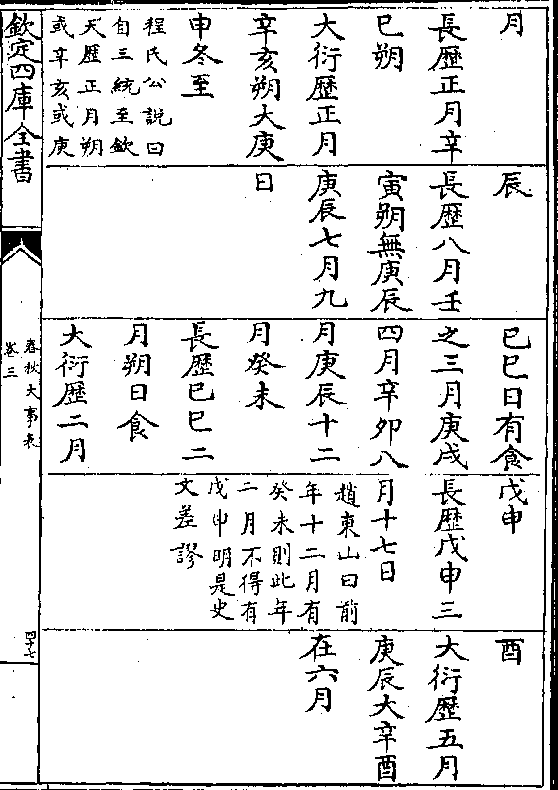 月
長歷正月辛
巳朔
大衍歷正月
辛亥朔大庚
申冬至
程氏公說曰
自三統至欽
天歷正月朔
或辛亥或庚
辰
長歷八月壬
寅朔無庚辰
庚辰七月九
日
巳巳日有食
之三月庚戌
四月辛卯八
月庚辰十二
月癸未
長歷巳巳二
月朔日食
大衍歷二月
戊申
長歷戊申三
月十七日
趙東山曰前
年十二月有
癸未則此年
二月不得有
戊申明是史
文差謬
酉
大衍歷五月
庚辰大辛酉
在六月
欽定四庫全書
春秋大事表
卷三
四十七